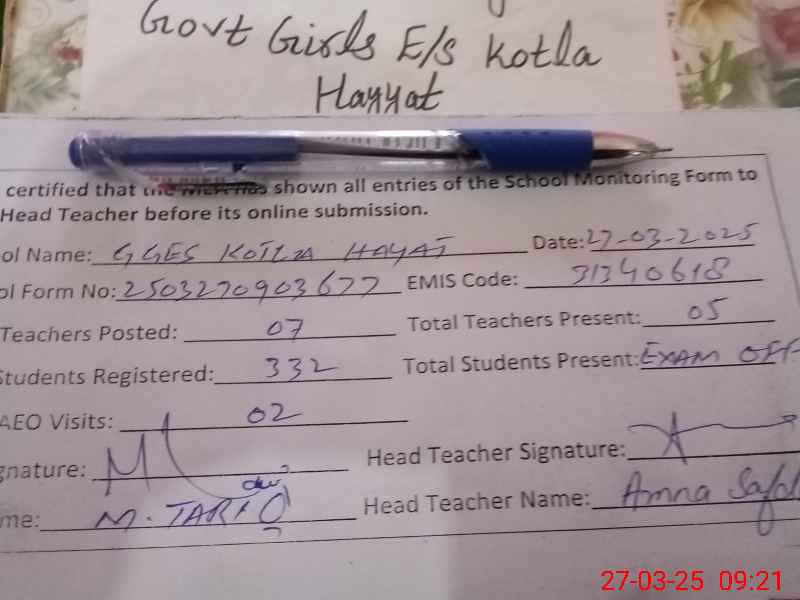 Govt Girls E/S Kotla
Hayyat
certified that the MEA has shown all entries of the School Monitoring Form to
Head Teacher before its online submission.
ol Name: GGES KOTLA HAYAT Date: 27-03-2025
ol Form No: 2503270903677 EMIS Code: 31340618
Teachers Posted: 07 Total Teachers Present: 05
Students Registered: 332 Total Students Present: EXAM OFF
AEO Visits: 02
gnature: Head Teacher Signature:
me: M. TARIQ Head Teacher Name: Amna
27-03-25 09:21